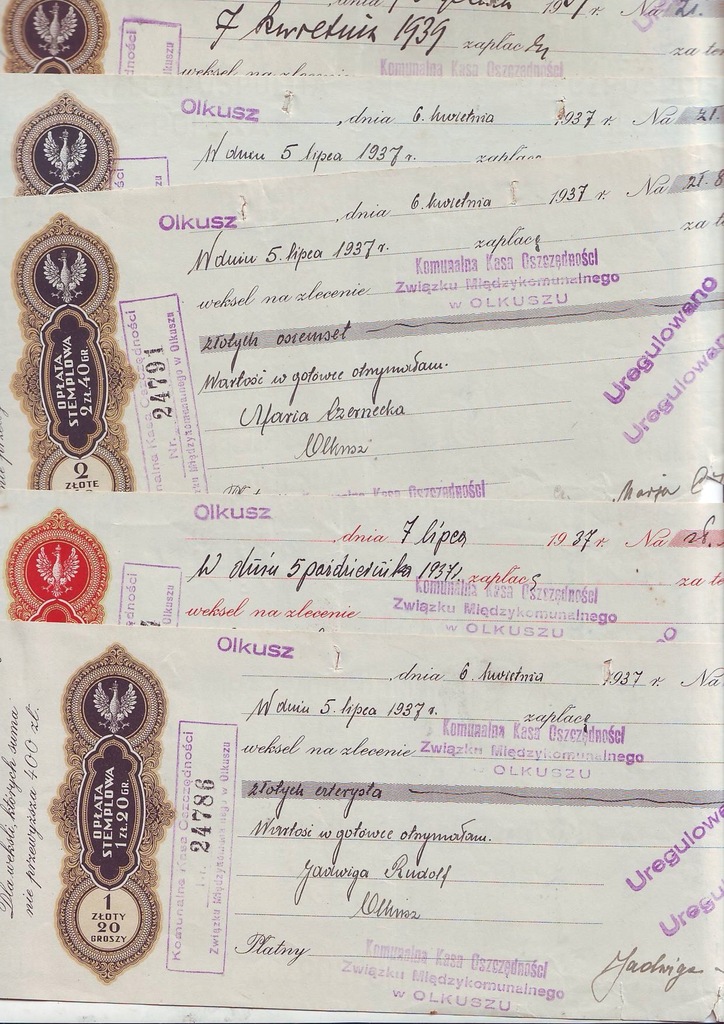 7 kwietnia 1939 zapłacę
za te
weksel na zlecenie Komunalna Kasa Oszczędności
Olkusz
, dnia 6. kwietnia 1937 r. Na zł.
W dniu 5 lipca 1937 r. zapłacę
Olkusz
, dnia 6. kwietnia 1937 r. Na zł. 8
W dniu 5. lipca 1937 r. zapłacę za te
weksel na zlecenie Komunalna Kasa Oszczędności
Związku Międzykomunalnego
w OLKUSZU
złotych osiemset
Uregulowano
Uregulowano
Wartość w gotowce otrzymałam.
Maria Czernecka
Olkusz
Komunalna Kasa Oszczędności
Marja
OPŁATA
STEMPLOWA
2 ZŁ. 40 GR.
2
ZŁOTE
Nr. 24791
Związku Międzykomunalnego w Olkuszu
Olkusz
, dnia 7 lipca 1937 r. Na zł.
W dniu 5 października 1937 r. zapłacę za te
weksel na zlecenie Komunalna Kasa Oszczędności
Związku Międzykomunalnego
w OLKUSZU
Olkusz
, dnia 6. kwietnia 1937 r. Na
W dniu 5. lipca 1937 r. zapłacę
weksel na zlecenie Komunalna Kasa Oszczędności
Związku Międzykomunalnego
OLKUSZU
złotych czterysta
Wartość w gotowce otrzymałam.
Jadwiga Rudolf
Olkusz
Uregulowano
Płatny Komunalna Kasa Oszczędności
Związku Międzykomunalnego
w OLKUSZU
Jadwiga
Dla weksli, których suma
nie przewyższa 400 zł.
OPŁATA
STEMPLOWA
1 ZŁ. 20 GR.
1
ZŁOTY
20
GROSZY
Komunalna Kasa Oszczędności
Nr. 24786
Związku Międzykomunalnego w Olkuszu